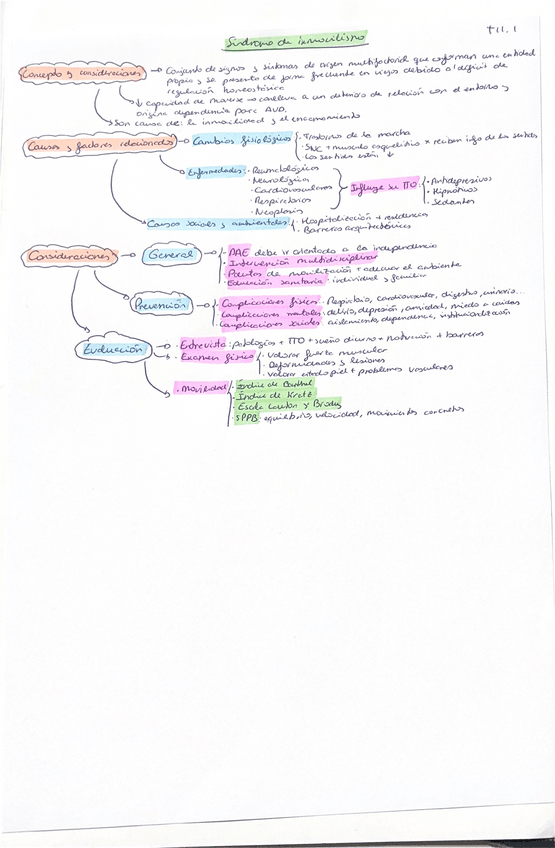 Síndrome de inmovilismo
T11.1
Concepto y consideraciones → Conjunto de signos y síntomas de origen multifactorial que conforman una entidad
propia y se presenta de forma frecuente en viejos debido al déficit de
regulación homeostásica
↓ capacidad de moverse → conlleva a un deterioro de relación con el entorno y
origina dependencia para AVD.
Son causa de: la inmovilidad y el encamamiento
Causas y factores relacionados → Cambios fisiológicos
· Trastorno de la marcha
· SNC + musculo esquelético × reciben info de los sentidos
· Los sentidos están ↓
Enfermedades: · Reumatológicas
· Neurológicas
· Cardiovasculares
· Respiratorias
· Neoplasia
Influye su TTO
· Antidepresivos
· Hipnóticos
· Sedantes
Causas sociales y ambientales
· Hospitalización + residencias
· Barreras arquitectónicas
Consideraciones → General →
· PAE debe ir orientado a la independencia
· Intervención multidisciplinar
· Pautas de movilización + adecuar el ambiente
· Educación sanitaria: individual y familiar
Prevención →
· Complicaciones físicas: Respiratorio, cardiovascular, digestivo, urinario...
· Complicaciones mentales: delirio, depresión, ansiedad, miedo a caídas
· Complicaciones sociales: aislamiento, dependencia, institucionalización
Evaluación → · Entrevista: patologías + TTO + sueño diurno + nutrición + barreras
· Examen físico
· Valorar fuerza muscular
· Deformidades y lesiones
· Valorar estado piel + problemas vasculares
· Movilidad
· Índice de Barthel
· Índice de Katz
· Escala Lawton y Brody
· SPPB: equilibrio, velocidad, movimientos concretos